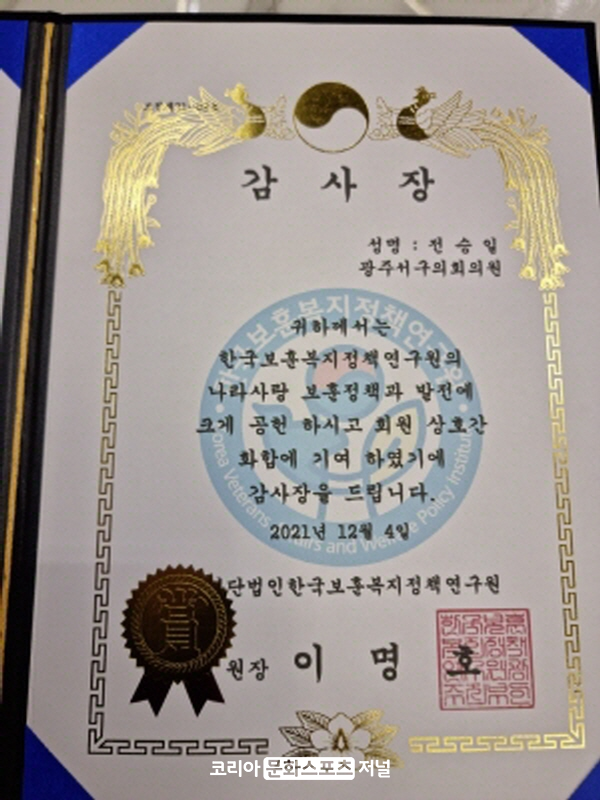 감 사 장
성명 : 전 승 일
광주서구의회의원
귀하께서는
한국보훈복지정책연구원의
나라사랑 보훈정책과 발전에
크게 공헌 하시고 회원 상호간
화합에 기여 하였기에
감사장을 드립니다.
2021년 12월 4일
단법인한국보훈복지정책연구원
원장 이 명 호
Korea Veterans Affairs and Welfare Policy Institute
코리아 문화스포츠 저널